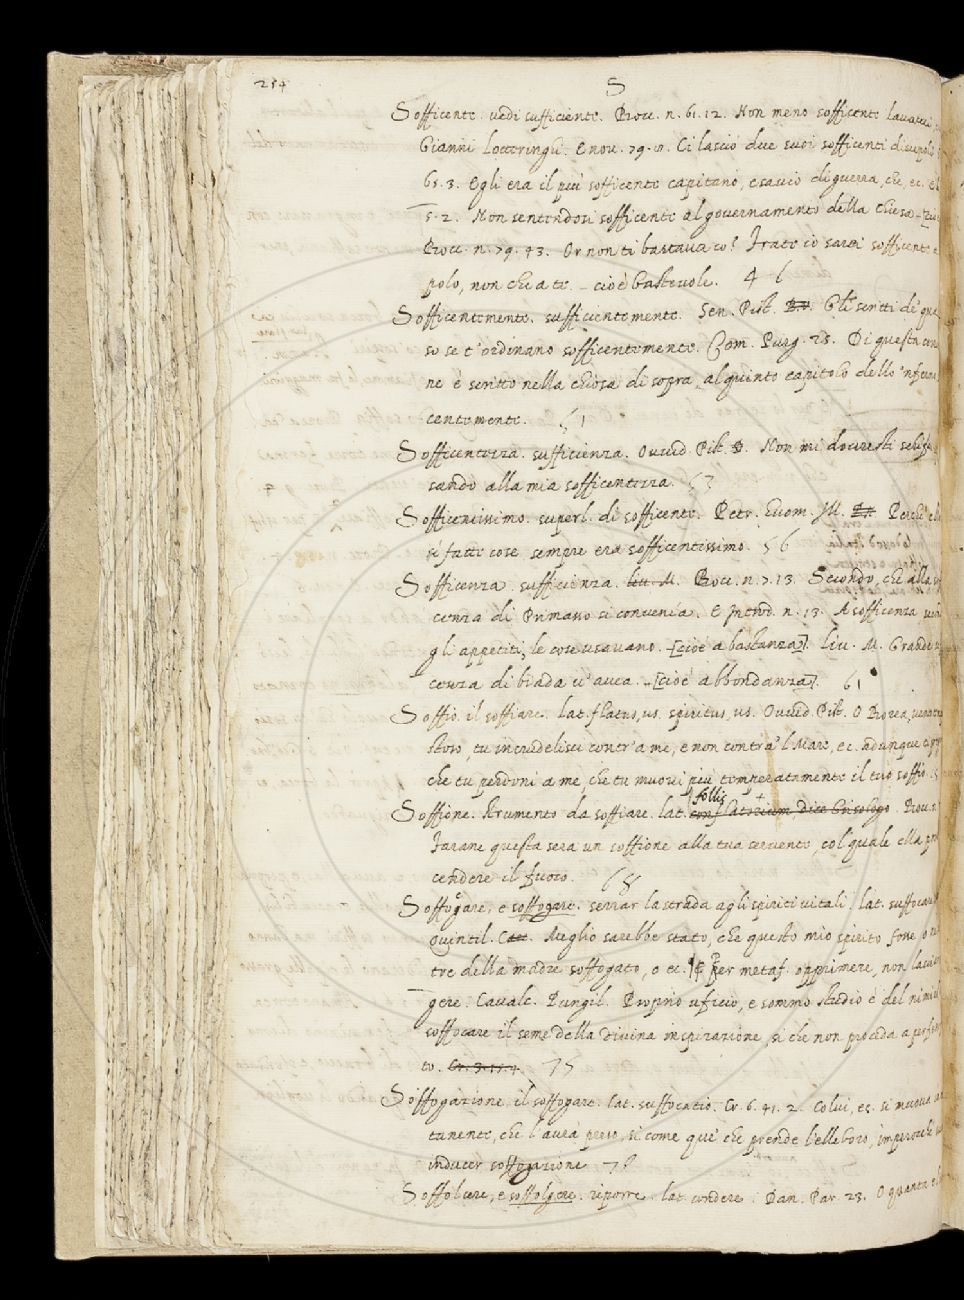 254
S
Sofficente. vedi sufficiente. Bocc. n. 61. 12. Non meno sofficente lavaceci
Gianni Lotteringli. E nov. 79. Ci lasciò due suoi sofficenti discepoli
65. 3. Egli era il più sofficente capitano, e savio di guerra, che, ec.
5. 2. Non sentendosi sofficente al governamento della Chiesa
Bocc. n. 79. 43. Or non ti bastava io? Frate io sarei sofficente
polo, non che a te. - cioè bastevole. 46
Sofficentemente. sufficientemente. Sen. Pist. Gli scritti de' que
so se t'ordinano sofficentemente. Com. Purg. 25. Di questa
ne è scritto nella chiosa di sopra, al quinto capitolo dello 'nferno
centemente. 51
Sofficentezza. sufficienza. Ovvid. Pist. Non mi dovresti schifa
sando alla mia sofficentezza. 53
Sofficentissimo. superl. di sofficente. Petr. huom. Ill. Perchè
sì fatte cose sempre era sofficentissimo. 56
Sofficenza. sufficienza. Liv. M. Bocc. n. 7. 13. Secondo, che alla
cenza di Primasso si convenia. E Introd. n. 13. A sofficenza
gli appetiti, le cose usavano. [cioè a bastanza]. Liv. M. Grande
cenza di biada v'avea. [cioè abbondanza]. 61
Soffio. il soffiare. lat. flatus, us. spiritus, us. Ovvid. Pist. O Borea,
stoso, tu incrudelisci contr'a me, e non contra 'l Mare, ec. adunque
che tu perdoni a me, che tu muovi più temperatamente il tuo soffio.
follis +
Soffione. strumento da soffiare. lat. conflatorium dice Grisologo. Bocc. n.
Farane questa sera un soffione alla tua servente, col quale ella
cendere il fuoco. 68
Soffogare, e soffogare. serrar la strada agli spiriti vitali. lat. suffocare
Quintil. C. Meglio sarebbe stato, che questo mio spirito fosse
tre della madre soffogato, o ec. ¶ Per metaf. opprimere, non lasciar
gere. Cavalc. Pungil. Proprio uficio, e sommo studio è del nimico
soffocare il seme della divina inspirazione, sì che non proceda a
to. Cr. 3. 15. 4. 75
Soffogazione. il soffogare. Lat. suffocatio. Cr. 6. 41. 2. Colui, ec. si muova
tunente, che l'avrà preso, sì come que' che prende l'elleboro, imperocchè
inducer soffogazione 78
Soffolcere, e soffolgere. riporre. lat. condere. Dan. Par. 23. O quanta è